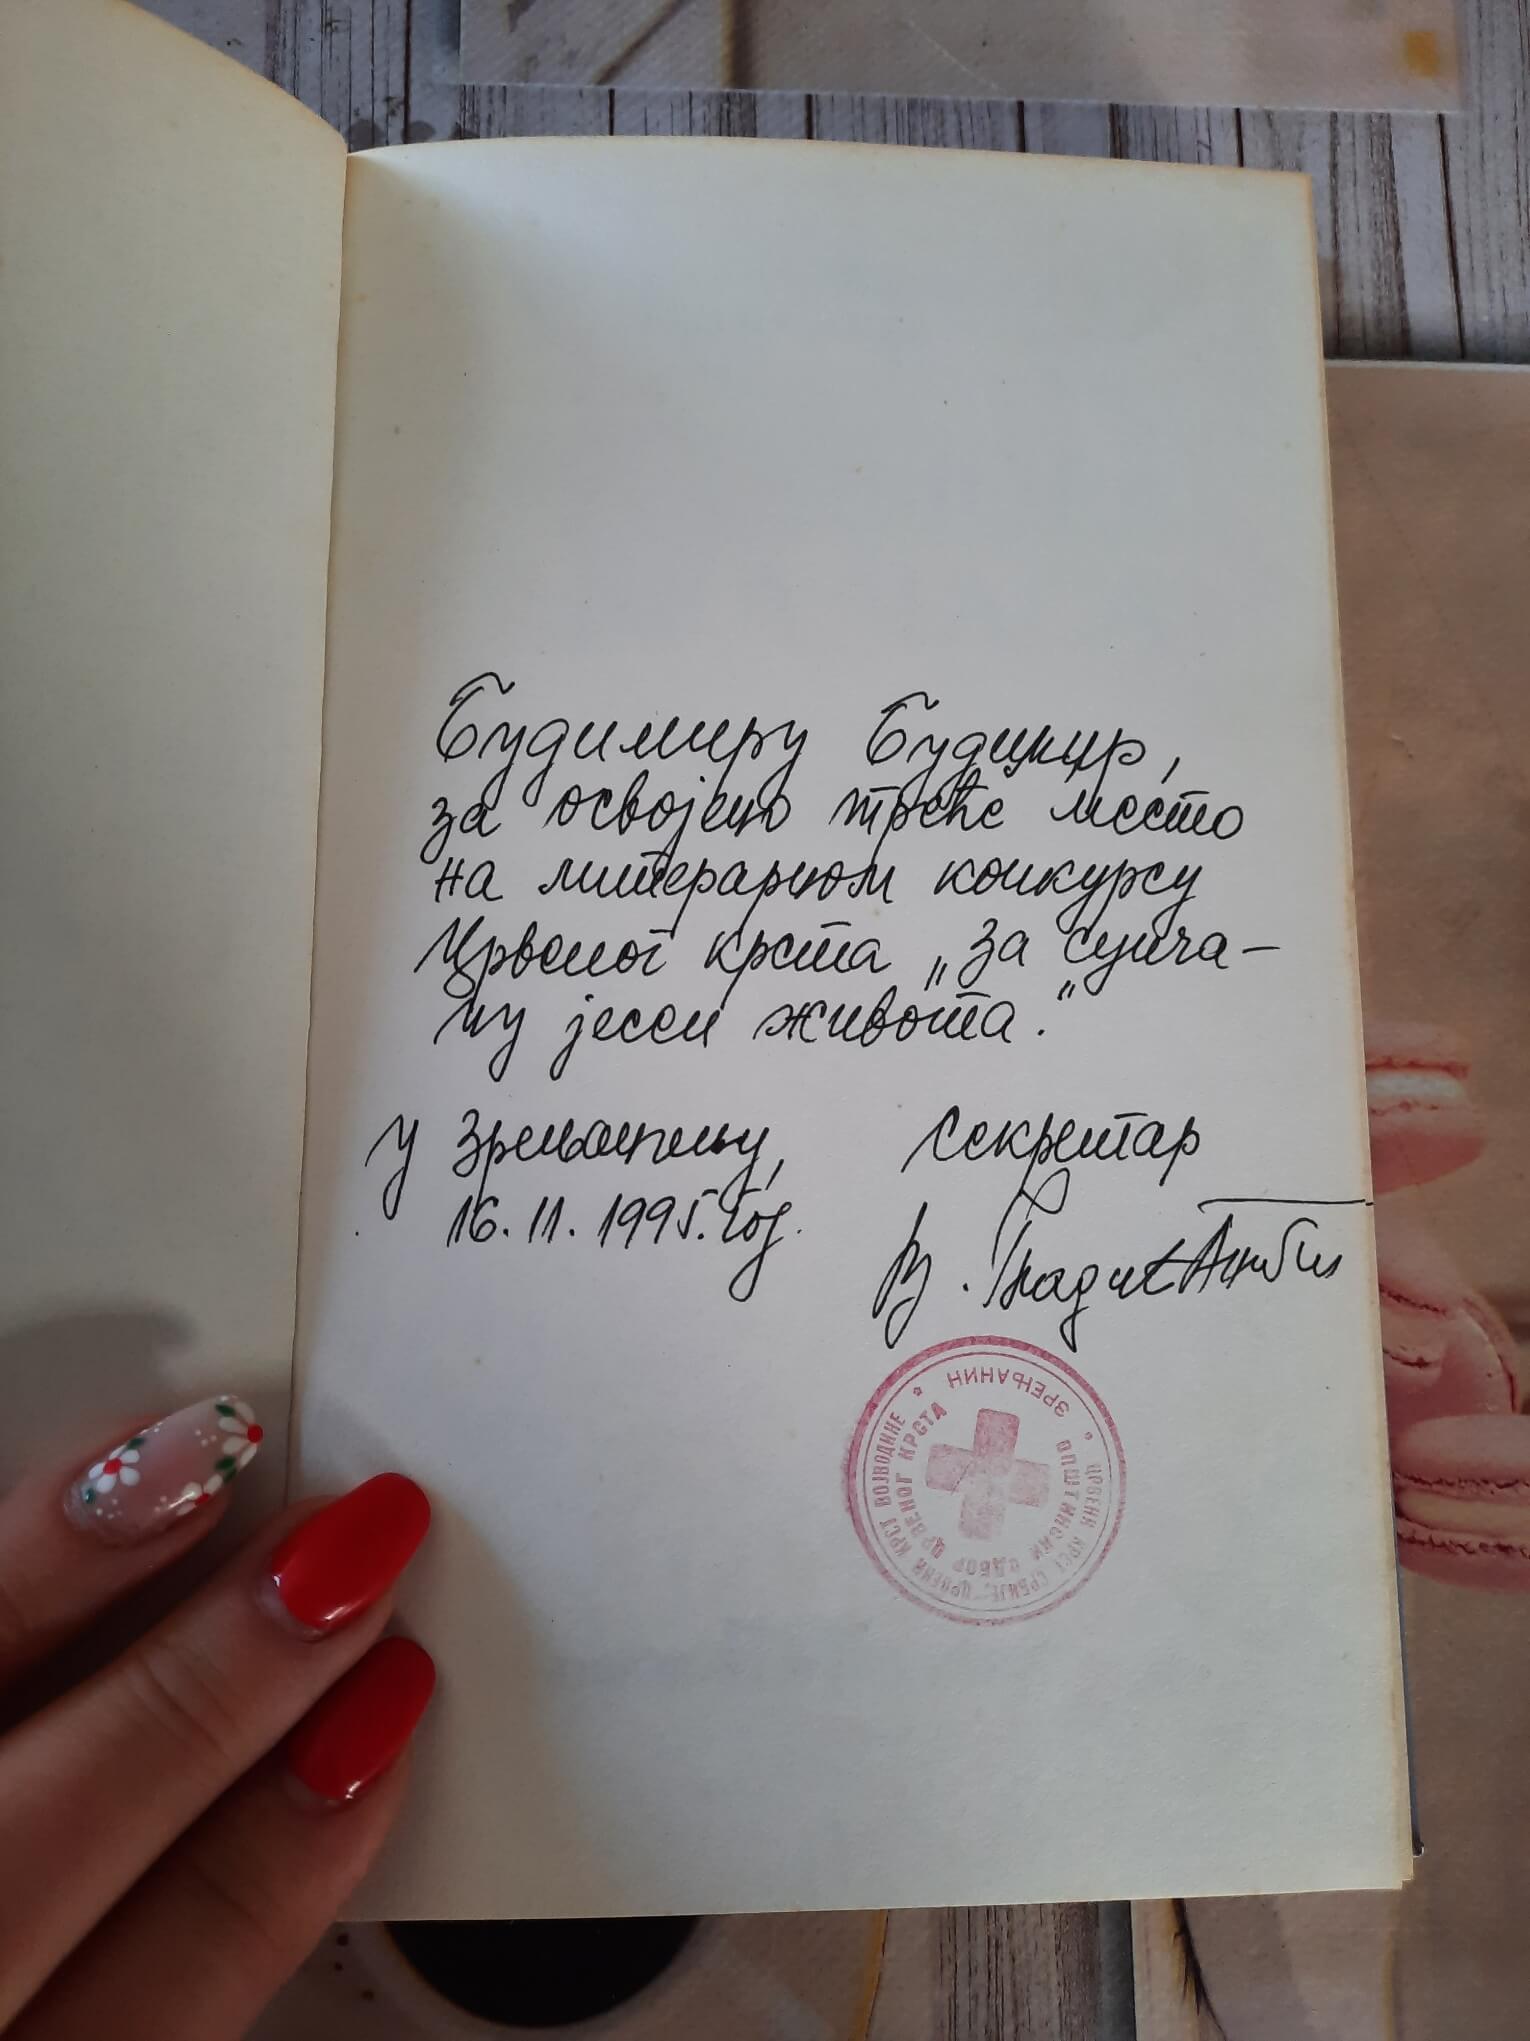 Будимиру
за освојено треће место
на литерарном конкурсу
Црвеног крста „За сунча-
ну јесен живота."
У Зрењанину,
16. 11. 1995. год.
Секретар
В.
ЦРВЕНИ КРСТ СРБИЈЕ, ЦРВЕНИ КРСТ ВОЈВОДИНЕ
ОПШТИНСКИ ОДБОР ЦРВЕНОГ КРСТА
ЗРЕЊАНИН